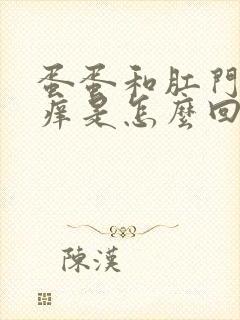 蛋蛋和肛門
痒是怎麼回
陳漢